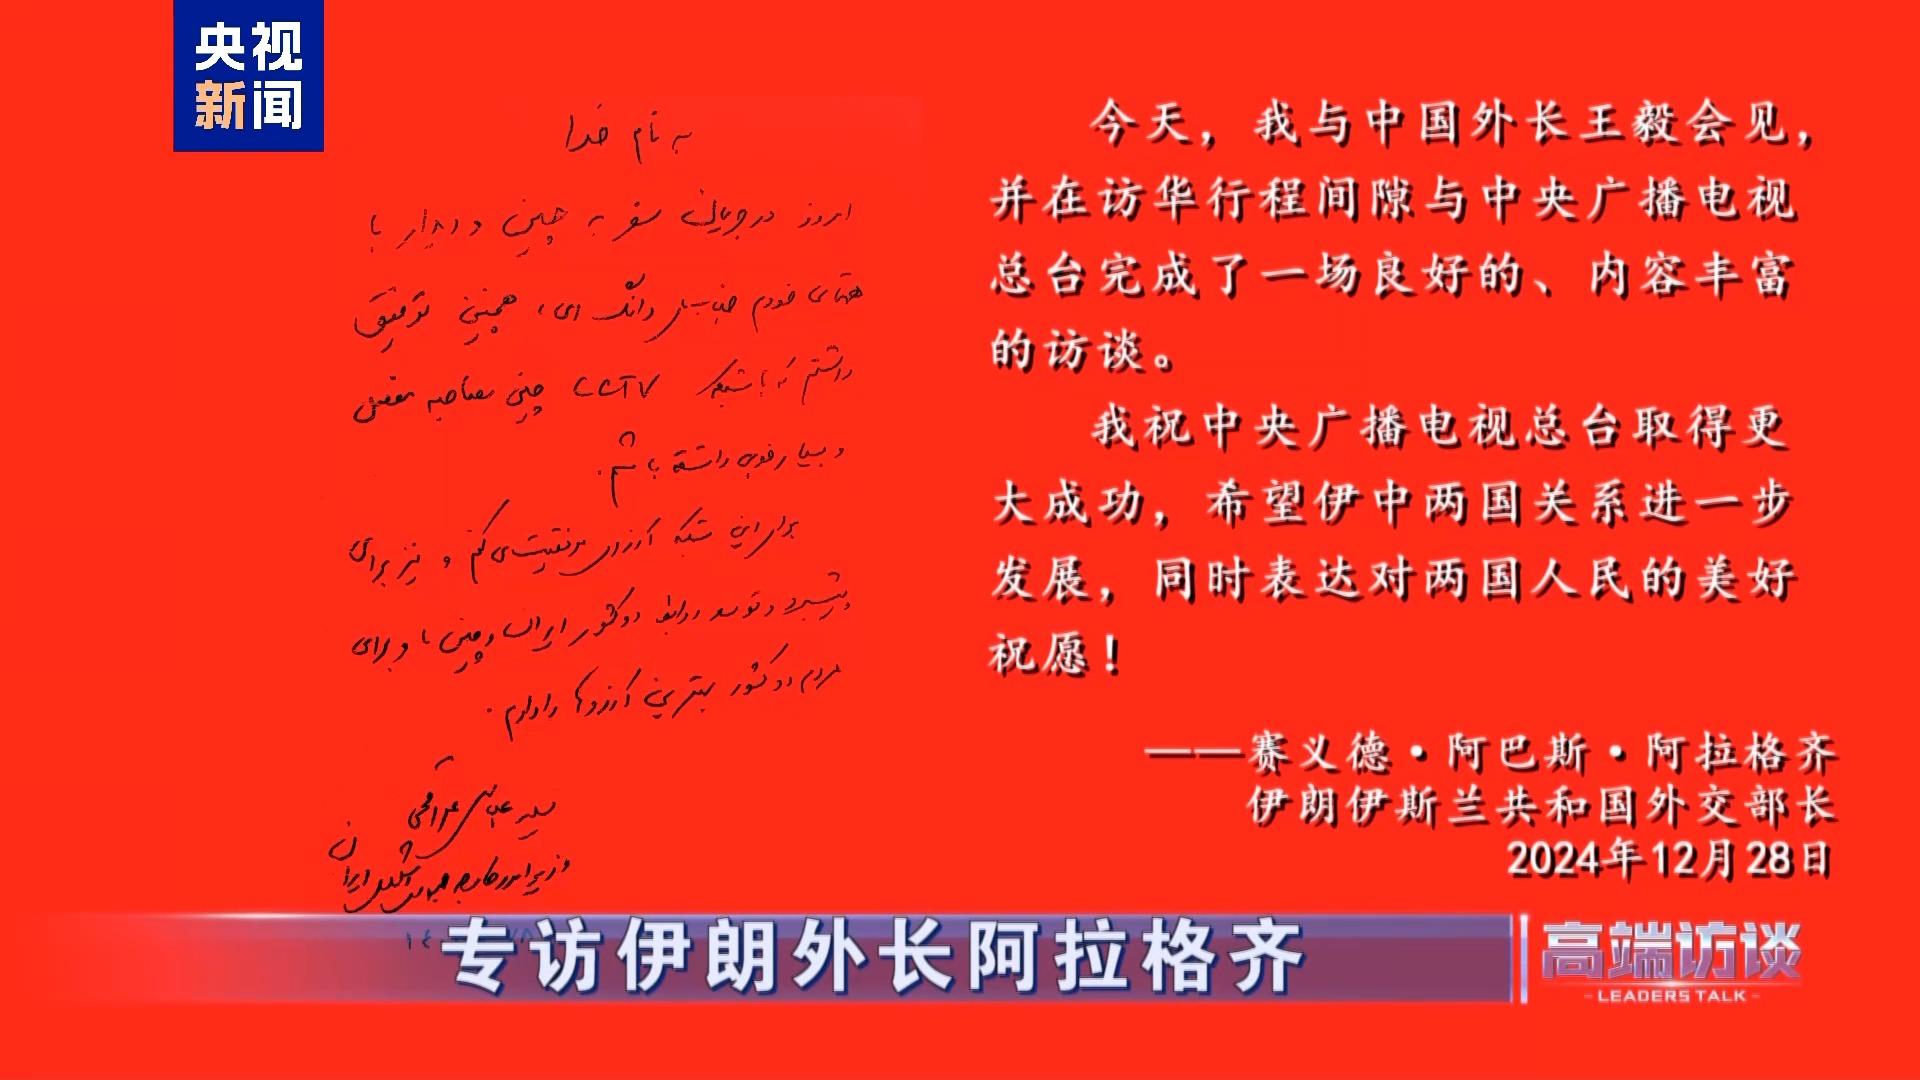 央视
新闻
به نام خدا
امروز در جریان سفر به چین و دیدار با
همتای خودم جناب وانگ ای، همچنین توفیق
داشتم که با شبکه CCTV چین مصاحبه مفصل
و بسیار خوبی داشته باشم.
برای این شبکه آرزوی موفقیت می کنم و نیز برای
پیشبرد و توسعه روابط دو کشور ایران و چین و برای
مردم دو کشور بهترین آرزوها را دارم.
سید عباس عراقچی
وزیر امور خارجه جمهوری اسلامی ایران
今天，我与中国外长王毅会见，
并在访华行程间隙与中央广播电视
总台完成了一场良好的、内容丰富
的访谈。
我祝中央广播电视总台取得更
大成功，希望伊中两国关系进一步
发展，同时表达对两国人民的美好
祝愿！
——赛义德·阿巴斯·阿拉格齐
伊朗伊斯兰共和国外交部长
2024年12月28日
专访伊朗外长阿拉格齐
高端访谈
LEADERS TALK